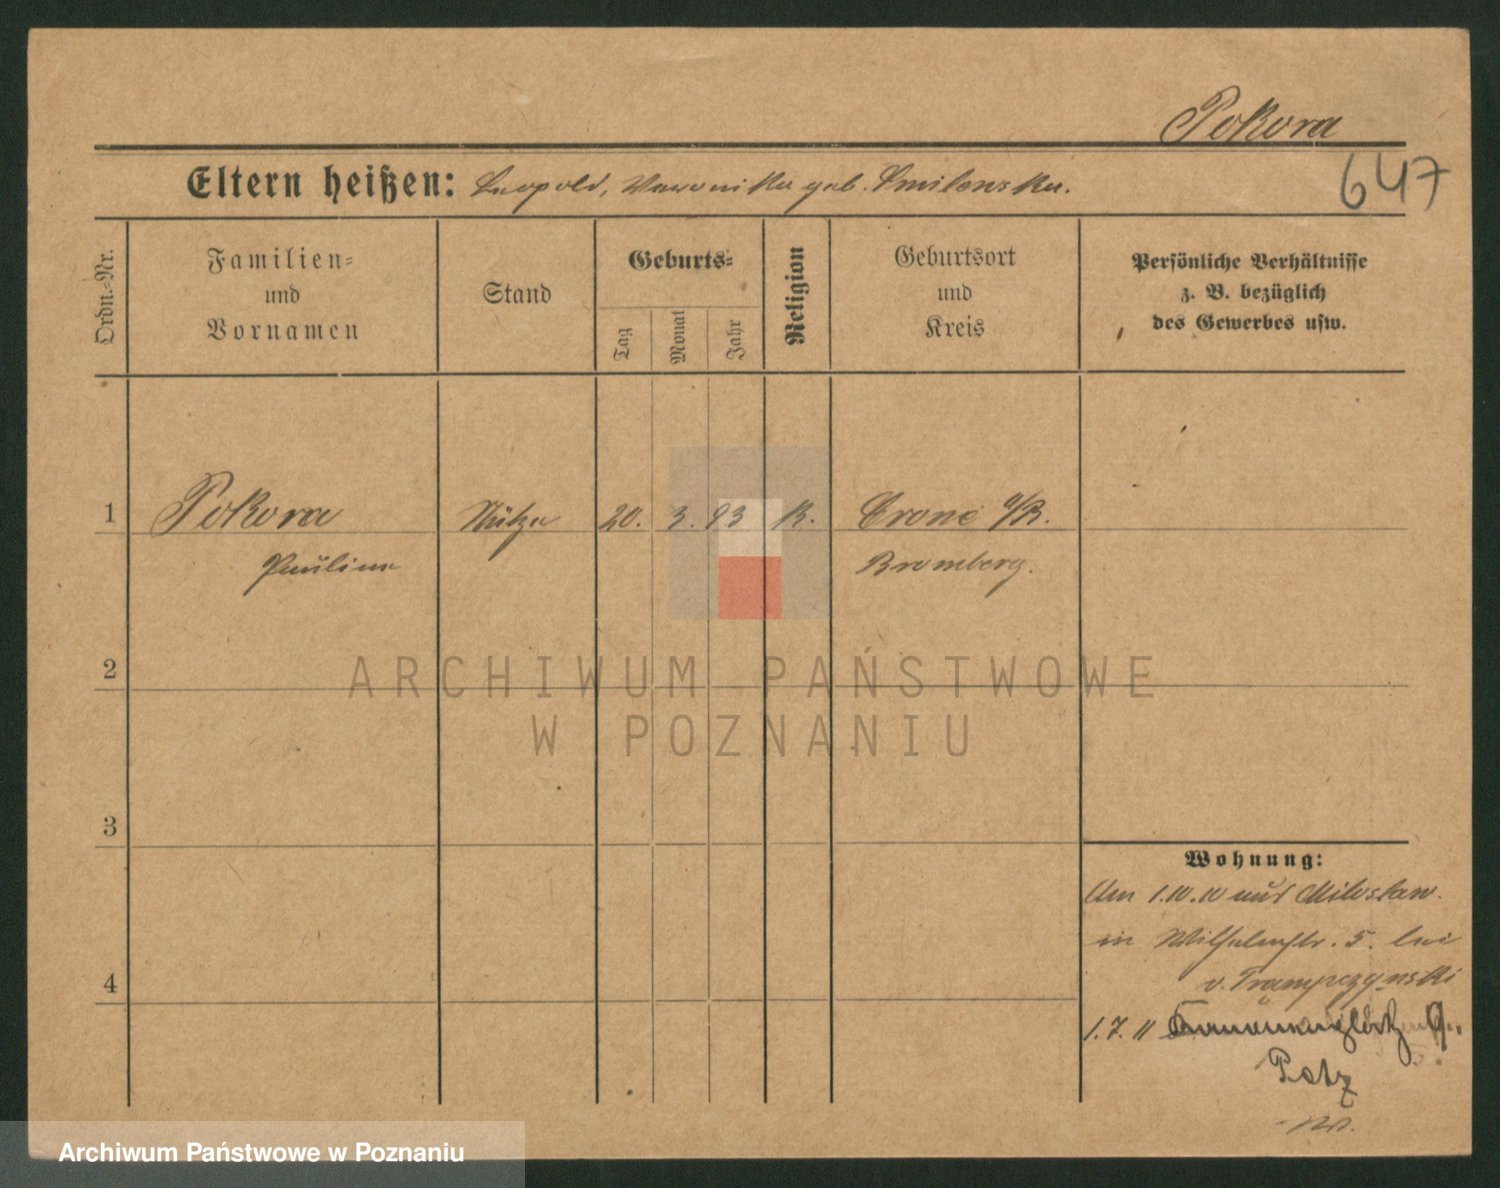 Pokora
647
Eltern heißen: Leopold, Veronika geb. Smilenska.
Ordn.-Nr.
Familien- und Vornamen
Stand
Geburts-
Tag
Monat
Jahr
Religion
Geburtsort und Kreis
Persönliche Verhältnisse
z. B. bezüglich
des Gewerbes usw.
1 Pokora Stütze 20. 3. 93 K. Crone a/B.
Pauline Bromberg.
2
3
4
Wohnung:
Am 1.10.10 aus Miloslaw.
in Wilhelmstr. 5. bei
v. Trampczynski
1.7.11
ARCHIWUM PAŃSTWOWE
W POZNANIU
Archiwum Państwowe w Poznaniu